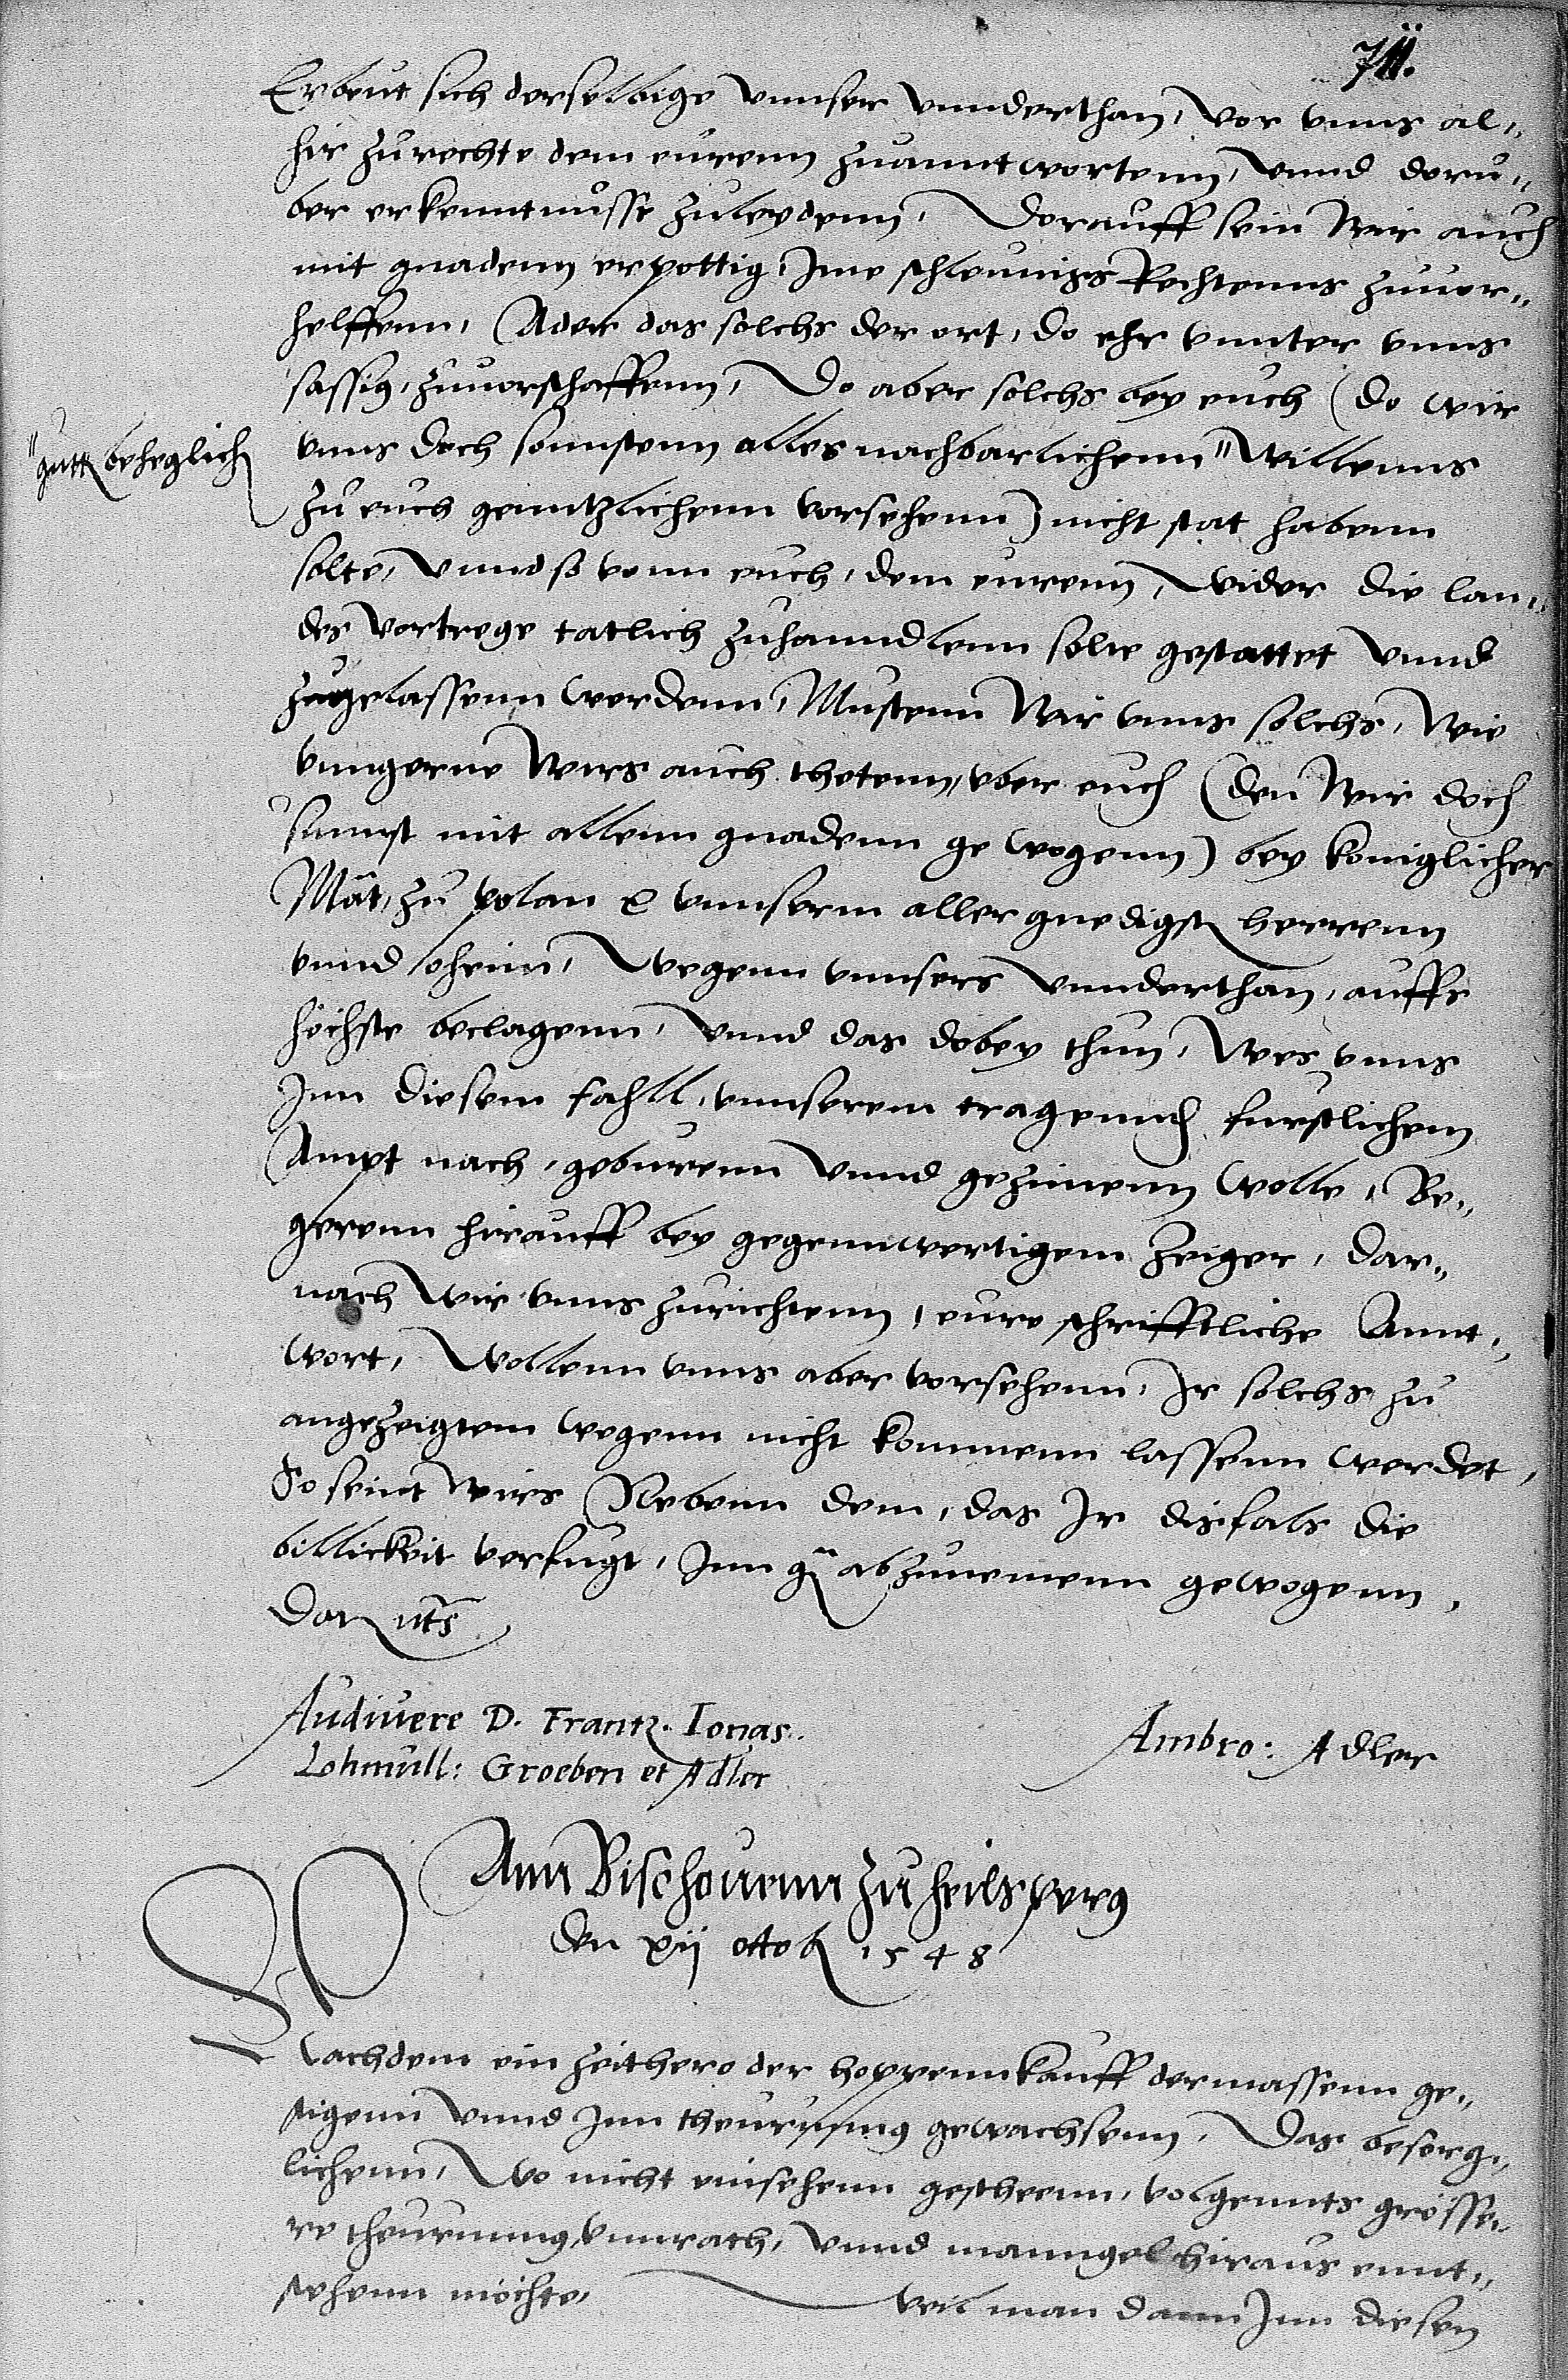 711.
Erbeut sich derselbige vnnser vnnderthan, vor vnns al„
hir zu rechte dem eurenn zuanntwortenn, vnnd doru„
ber erkenntnusse zuleydenn, Dorauff sein wir auch
mit gnadenn erpottig, Ime schleunigs Rechtenns zuuor„
helffenn, Ader das solchs der ort, do ehr vnnter vnns
sassig, zuuorschaffenn, Do aber solchs bey euch (do wir
vnns doch sonnstenn alles nachbarlichenn " willenns
"gutt beheglich
zu euch genntzlichenn vorsehenn) nicht stat habenn
solte, vnnd so vonn euch, dem eurenn, wider die lan„
des vortrege tatlich zuhanndlenn solte gestattet vnnd
zugelassenn werdenn, Mustenn wir vnns solchs, wie
vngerne wirs auch thetenn, vber euch (den wir doch
sunst mit allenn gnadenn gewogenn) bey koniglicher
Mat, zu polan ꝛc vnnserm aller gnedigst herrenn
vnnd oheim, wegenn vnnsers vnnderthan, auffs
höchste beclagenn, vnnd das dobey thun, wes vnns
Inn diesem fahll, vnnserem tragennd furstlichem
Ampt nach, geburenn vnnd gezimenn wolle, Be„
gerenn hirauff bey gegennwertigem Zeiger, dar„
nach wir vnns zurichtenn, eure schrifftliche Annt„
wort, wollenn vnns aber vorsehenn, Ir solchs zu
angezeigtem wegenn nicht kommenn lassenn werdet,
So seint wirs Nebenn dem, das Ir disfals die
billickeit verfugt, Inn gn abzunemenn gewogenn,
Dat uts
Audiuere D. Frantz. Ionas.
Lohmull: Groeben et Adler
Ambro: Adler
Ann Bischouenn zu heilsperg
den xij octob 1548
Nachdem ein zeithero der hoppennkauff dermassenn ge„
stigenn vnnd Inn theurunng gewachsenn, Das besorg„
lichenn, wo nicht einsehenn gescheenn, volgennts grösse„
re theurunng, vnrath, vnnd manngel hiraus ennt„
stehenn möchte, wil man dann Inn diesen